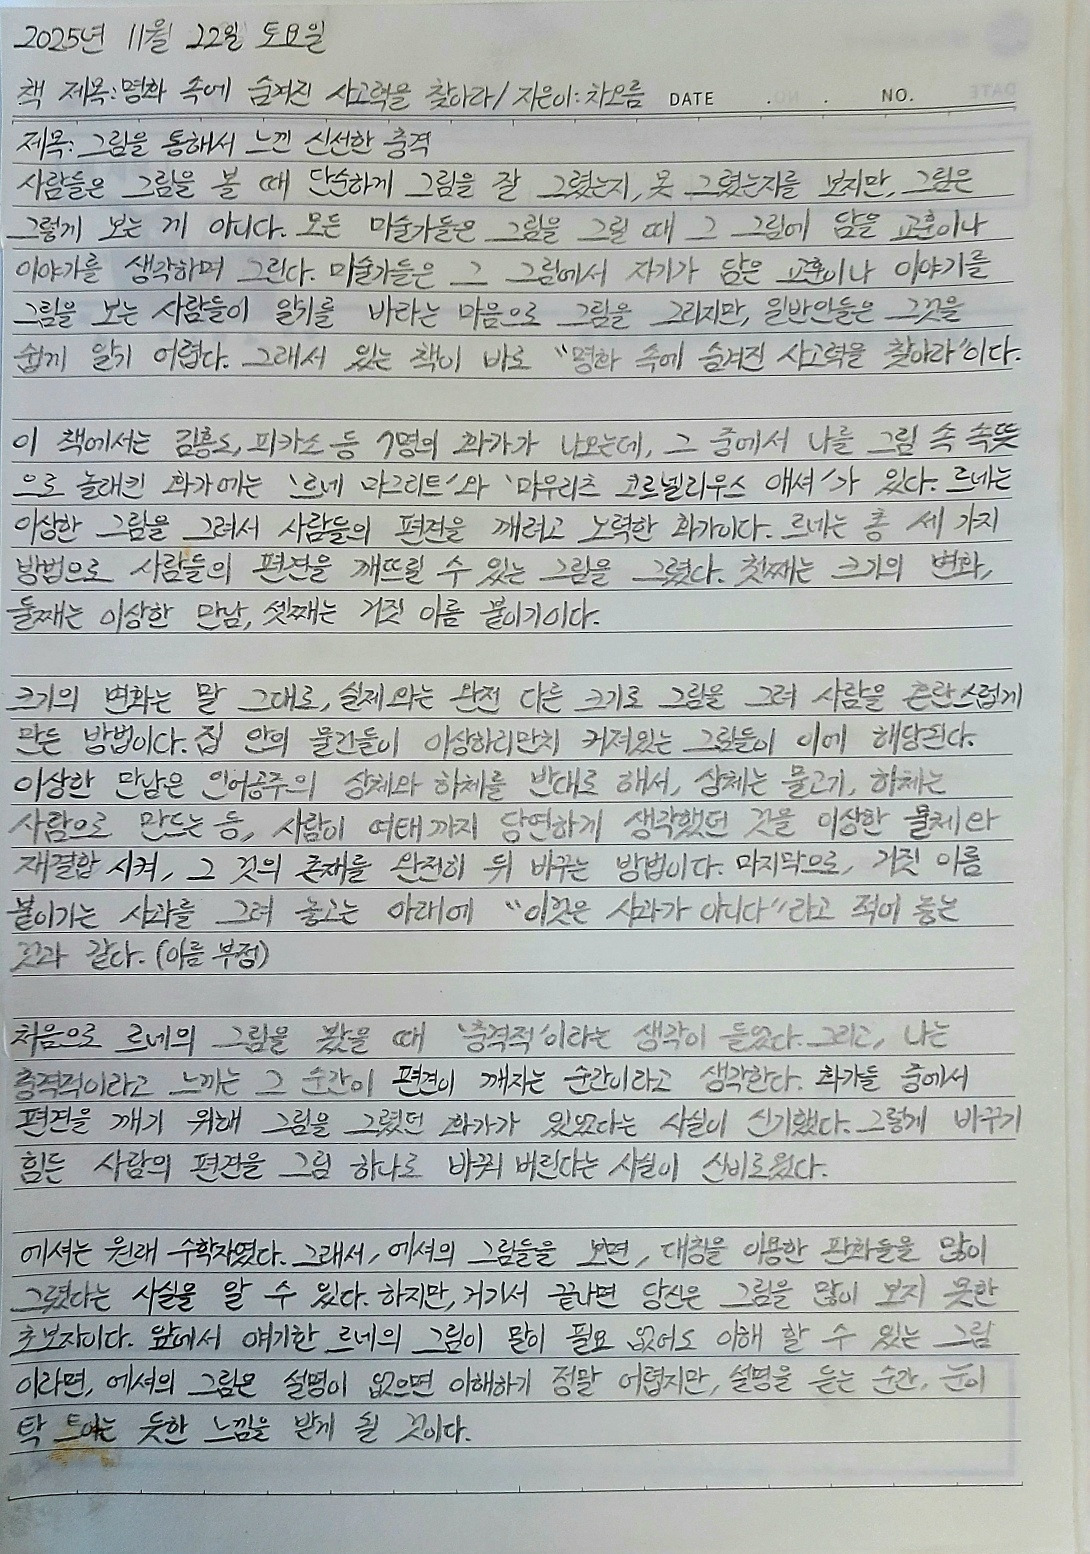 2025년 11월 22일 토요일
책 제목: 명화 속에 숨겨진 사고력을 찾아라/ 지은이: 차오름 DATE . . NO.
제목: 그림을 통해서 느낀 신선한 충격
사람들은 그림을 볼 때 단순하게 그림을 잘 그렸는지, 못 그렸는지를 보지만, 그림은
그렇게 보는 게 아니다. 모든 미술가들은 그림을 그릴 때 그 그림에 담을 교훈이나
이야기를 생각하며 그린다. 미술가들은 그 그림에서 자기가 담은 교훈이나 이야기를
그림을 보는 사람들이 알기를 바라는 마음으로 그림을 그리지만, 일반인들은 그것을
쉽게 알기 어렵다. 그래서 있는 책이 바로 “명화 속에 숨겨진 사고력을 찾아라”이다.
이 책에서는 김홍도, 피카소 등 7명의 화가가 나오는데, 그 중에서 나를 그림 속 속뜻
으로 놀래킨 화가에는 ‘르네 마그리트’와 ‘마우리츠 코르넬리우스 애셔’가 있다. 르네는
이상한 그림을 그려서 사람들의 편견을 깨려고 노력한 화가이다. 르네는 총 세 가지
방법으로 사람들의 편견을 깨뜨릴 수 있는 그림을 그렸다. 첫째는 크기의 변화,
둘째는 이상한 만남, 셋째는 거짓 이름 붙이기이다.
크기의 변화는 말 그대로, 실제와는 완전 다른 크기로 그림을 그려 사람을 혼란스럽게
만든 방법이다. 집 안의 물건들이 이상하리만치 커져있는 그림들이 이에 해당된다.
이상한 만남은 인어공주의 상체와 하체를 반대로 해서, 상체는 물고기, 하체는
사람으로 만드는 등, 사람이 여태까지 당연하게 생각했던 것을 이상한 물체와
재결합 시켜, 그 것의 존재를 완전히 뒤 바꾸는 방법이다. 마지막으로, 거짓 이름
붙이기는 사과를 그려 놓고는 아래에 “이것은 사과가 아니다”라고 적어 놓는
것과 같다. (이름 부정)
처음으로 르네의 그림을 봤을 때 ‘충격적’이라는 생각이 들었다. 그리고, 나는
충격적이라고 느끼는 그 순간이 편견이 깨지는 순간이라고 생각한다. 화가들 중에서
편견을 깨기 위해 그림을 그렸던 화가가 있었다는 사실이 신기했다. 그렇게 바꾸기
힘든 사람의 편견을 그림 하나로 바꿔 버린다는 사실이 신비로웠다.
에셔는 원래 수학자였다. 그래서, 에셔의 그림들을 보면, 대칭을 이용한 판화들을 많이
그렸다는 사실을 알 수 있다. 하지만, 거기서 끝나면 당신은 그림을 많이 보지 못한
초보자이다. 앞에서 얘기한 르네의 그림이 말이 필요 없어도 이해 할 수 있는 그림
이라면, 에셔의 그림은 설명이 없으면 이해하기 정말 어렵지만, 설명을 듣는 순간, 눈이
탁 트이는 듯한 느낌을 받게 될 것이다.